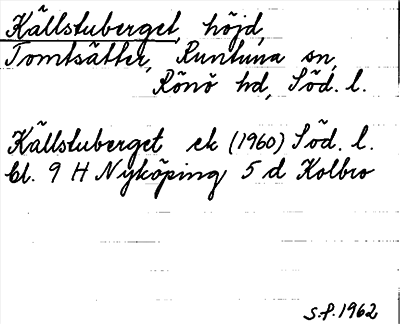 Källstuberget, höjd,
Tomtsätter, Runtuna sn,
Rönö hd, Söd. l.
Källstuberget ek (1960) Söd. l.
bl. 9 H Nyköping 5 d Kolbro
S.P. 1962